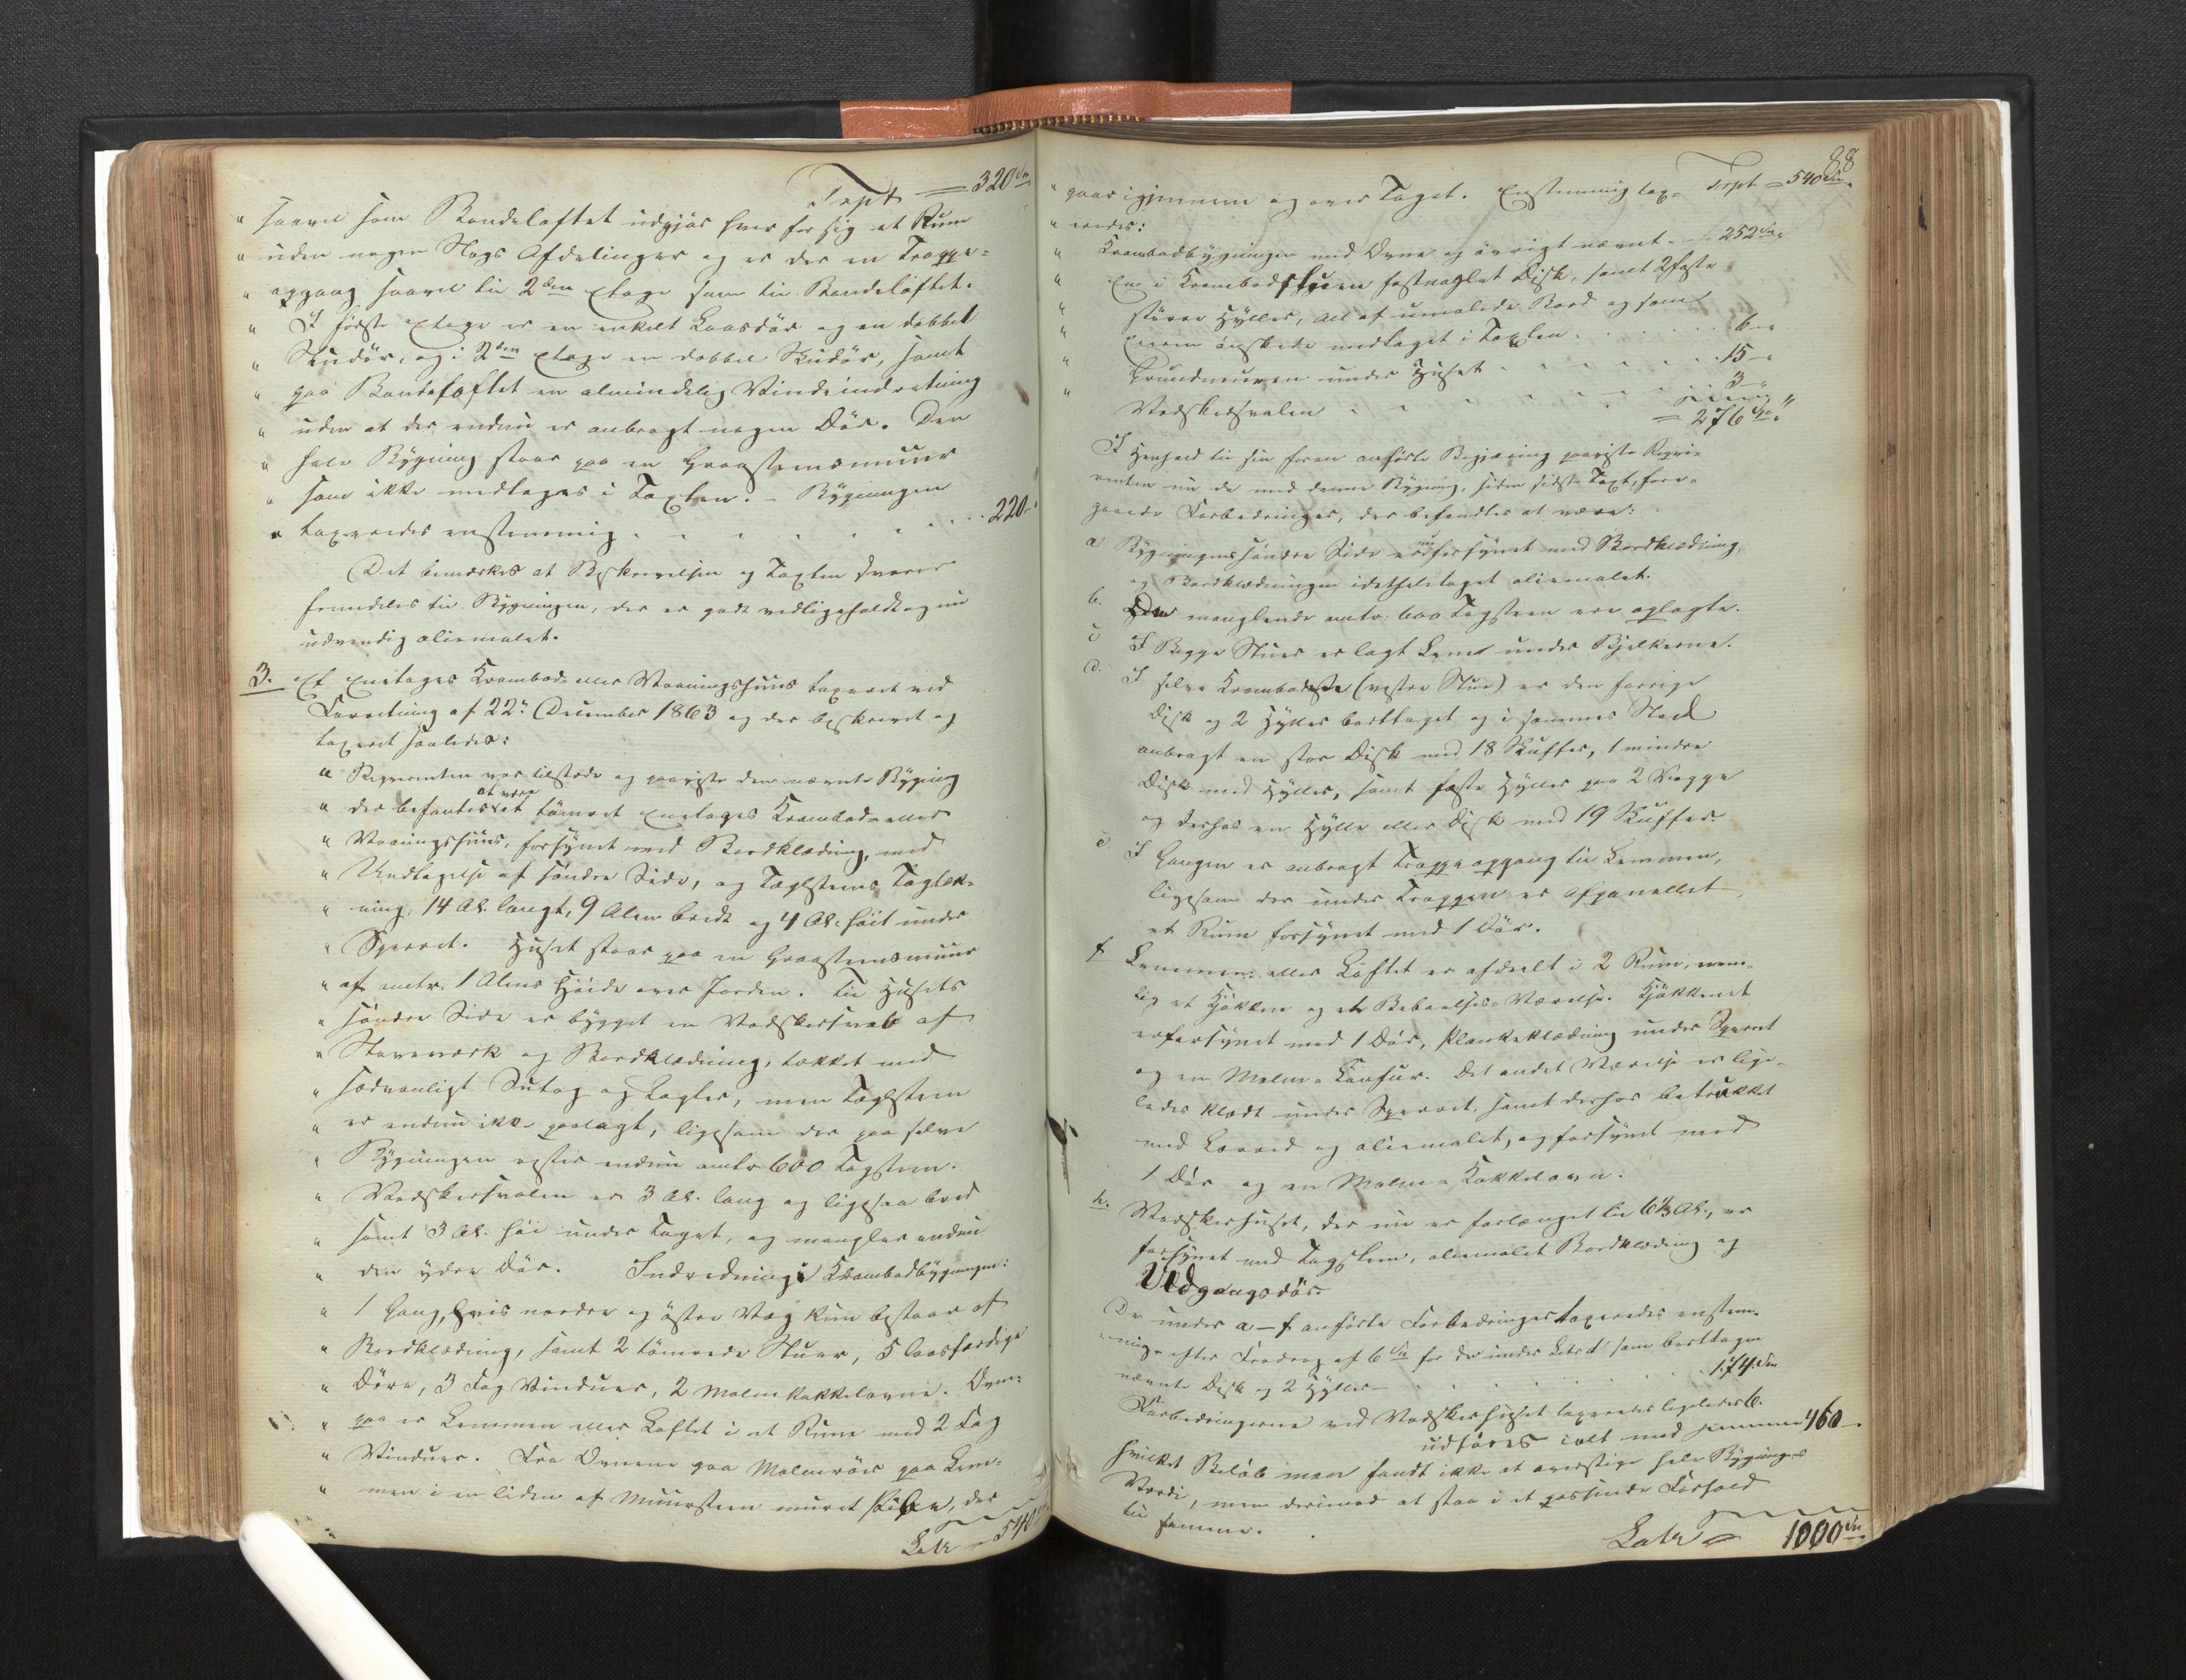 Trspt = 320 Spd
" saavel som Bandeloftet udgjør hver for sig et Rum
" uden nogen Slags Afdelinger og er der en Trappe-
" opgang saavel til 2den Etage som til Bandeloftet.
" I første Etage er en enkelt Laasdør og en dobbelt
" Skudør, og i 2den Etage en dobbel Skudør, samt
" paa Bandeloftet en almindelig Vindeindretning
" uden at der endnu er anbragt nogen Dør. Den
" hele Bygning staar paa en Graasteensmuur
" som ikke medtages i Taxten. – Bygningen
" taxeredes enstemmig . . . . . . . 220 –
Det bemærkes at Beskrivelsen og Taxten svarer
fremdeles til Bygningen, der er godt vedligeholdt og nu
udvendig oliemalet.
3. Et Eenetages Krambod- eller Vaaningshuus taxeret ved
Forretning af 22de December 1863 og der beskrevet og
taxeret saaledes:
" Reqvirenten var tilstede og paaviste den nævnte Bygning
" der befantes at være et tømret Eenetages Krambod- eller
" Vaaningshuus, forsynet med Bordklædning, med
" Undtagelse af søndre Side, og Tæglsteens Taglæk-
" ning, 14 Al. langt, 9 Alen bredt og 4 Al. høit under
" Sperret. Huset staar paa en Graasteensmuur
" af omtr. 1 Alens Høide over Jorden. Til Husets
" søndre Side er bygget en Vadskersval af
" Staveværk og Bordklædning, tækket med
" sædvanligt Sutag og Lægter, men Tæglsteen
" er endnu ikke paalagt, ligesom der paa selve
" Bygningen rester endnu omtr 600 Tagsteen.
" Vadskersvalen er 3 Al. lang og ligesaa bred
" samt 3 Al. høi under Taget, og mangler endnu
" den ydre Dør. Indredning i Krambodbygningen:
" 1 Gang, hvis nordre og østre Væg kun bestaar af
" Bordklædning, samt 2 tømrede Stuer, 5 laasfærdige
" Døre, 3 Fag Vinduer, 2 Malmkakkelovne. Oven-
" paa er Lemmen eller Loftet i et Rum med 2 Fag
" Vinduer. Fra Ovnene gaa Malmrør paa Lem-
" men i en liden af Muursteen muret Pibe, der
Latr = 540
88
Trspt = 540 Spd.
" gaar igjennem og over Taget. Enstemmig tax-
" eredes:
" Krambodbygningen med Ovne og øvrigt nævnt . . 252 Spd
" En i Krambodstuen fastnaglet Disk, samt 2 faste
" større Hylder, alt af umalede Bord og som
" Eieren ønskede medtaget i Taxten . . . . . . 6 – "
" Grundmuren under Huset . . . . . . . 15 – "
" Vadskersvalen . . . . . . . 3 – "
= 276 Spd "
I Henhold til sin foran anførte Begjæring paaviste Reqvi-
renten nu de med denne Bygning, siden sidste Taxt, fore-
gaaede Forbedringer, der befandtes at være:
a Bygningens søndre Side er nu forsynet med Bordklædning,
og Bordklædningen idetheletaget oliemalet.
b. De manglende omtr. 600 Tagsteen ere oplagte.
c I Begge Stuer er lagt Lem under Bjelkerne.
d. I selve Kramboden (vestre Stue) er den forrige
Disk og 2 Hylder borttaget og i sammes Sted
anbragt en stor Disk med 18 Skuffer, 1 mindre
Disk med Hylder, samt faste Hylder paa 2 Vægge
og derhos en Hylde eller Disk med 19 Skuffer.
e I Gangen er anbragt Trappeopgang til Lemmen,
ligesom der under Trappen er afpanellet
et Rum forsynet med 1 Dør.
f Lemmen eller Loftet er afdeelt i 2 Rum, nem-
lig et Kjøkken og et Beboelses-Værelse. Kjøkkenet
er forsynet med 1 Dør, Plankeklædning under Sperret
og en Malm-Komfur. Det andet Værelse er lige-
ledes klædt under Sperret, samt derhos betrukket
med Lærred og oliemalet, og forsynet med
1 Dør og en Malm-Kakkelovn.
h. Vadskerhuset, der nu er forlænget til 6½ Al., er
forsynet med Tagsteen, oliemalet Bordklædning og
Udgangsdør.
De under a–f anførte Forbedringer taxeredes enstem-
mig efter Fradrag af 6 Spd for de under Litr d som borttagne
nævnte Disk og 2 Hylder . . . . . . . 174 Spd
Forbedringerne ved Vadskerhuset taxeredes ligeledes 6.
udføres ialt med summa 460 –
hvilket Beløb man fandt ikke at overstige hele Bygningens
Værdi, men derimod at staa i et passende Forhold
til samme.
Latr = 1000 Spd